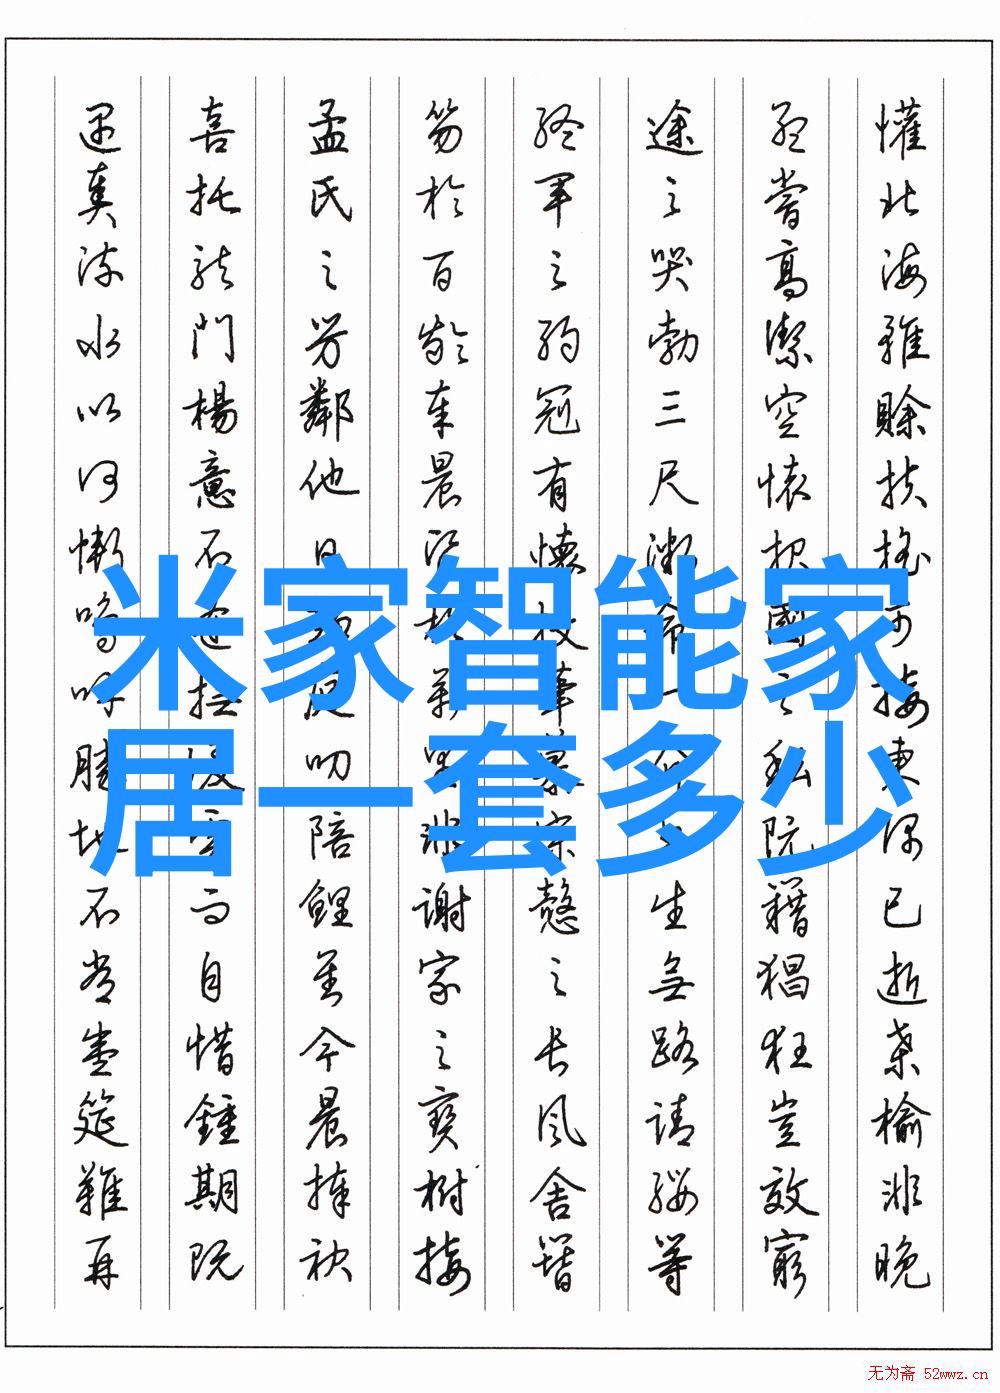 懽北海雖賒扶搖可接東隅已逝桑榆非晚
孟嘗高潔空懷报國之私阮籍猖狂豈效窮
途之哭勃三尺微命一介書生無路請纓等
終軍之弱冠有懷投筆慕宗慤之長風舍簪
笏於百齡奉晨昏於萬里非謝家之寶樹接
孟氏之芳鄰他日趨庭叨陪鯉對今晨捧袂
喜托龍門楊意不逢撫凌雲而自惜鍾期既
遇奏流水以何慚嗚呼勝地不常盛筵難再
米家智能家
居一套多少
无为斋 52wwz.cn